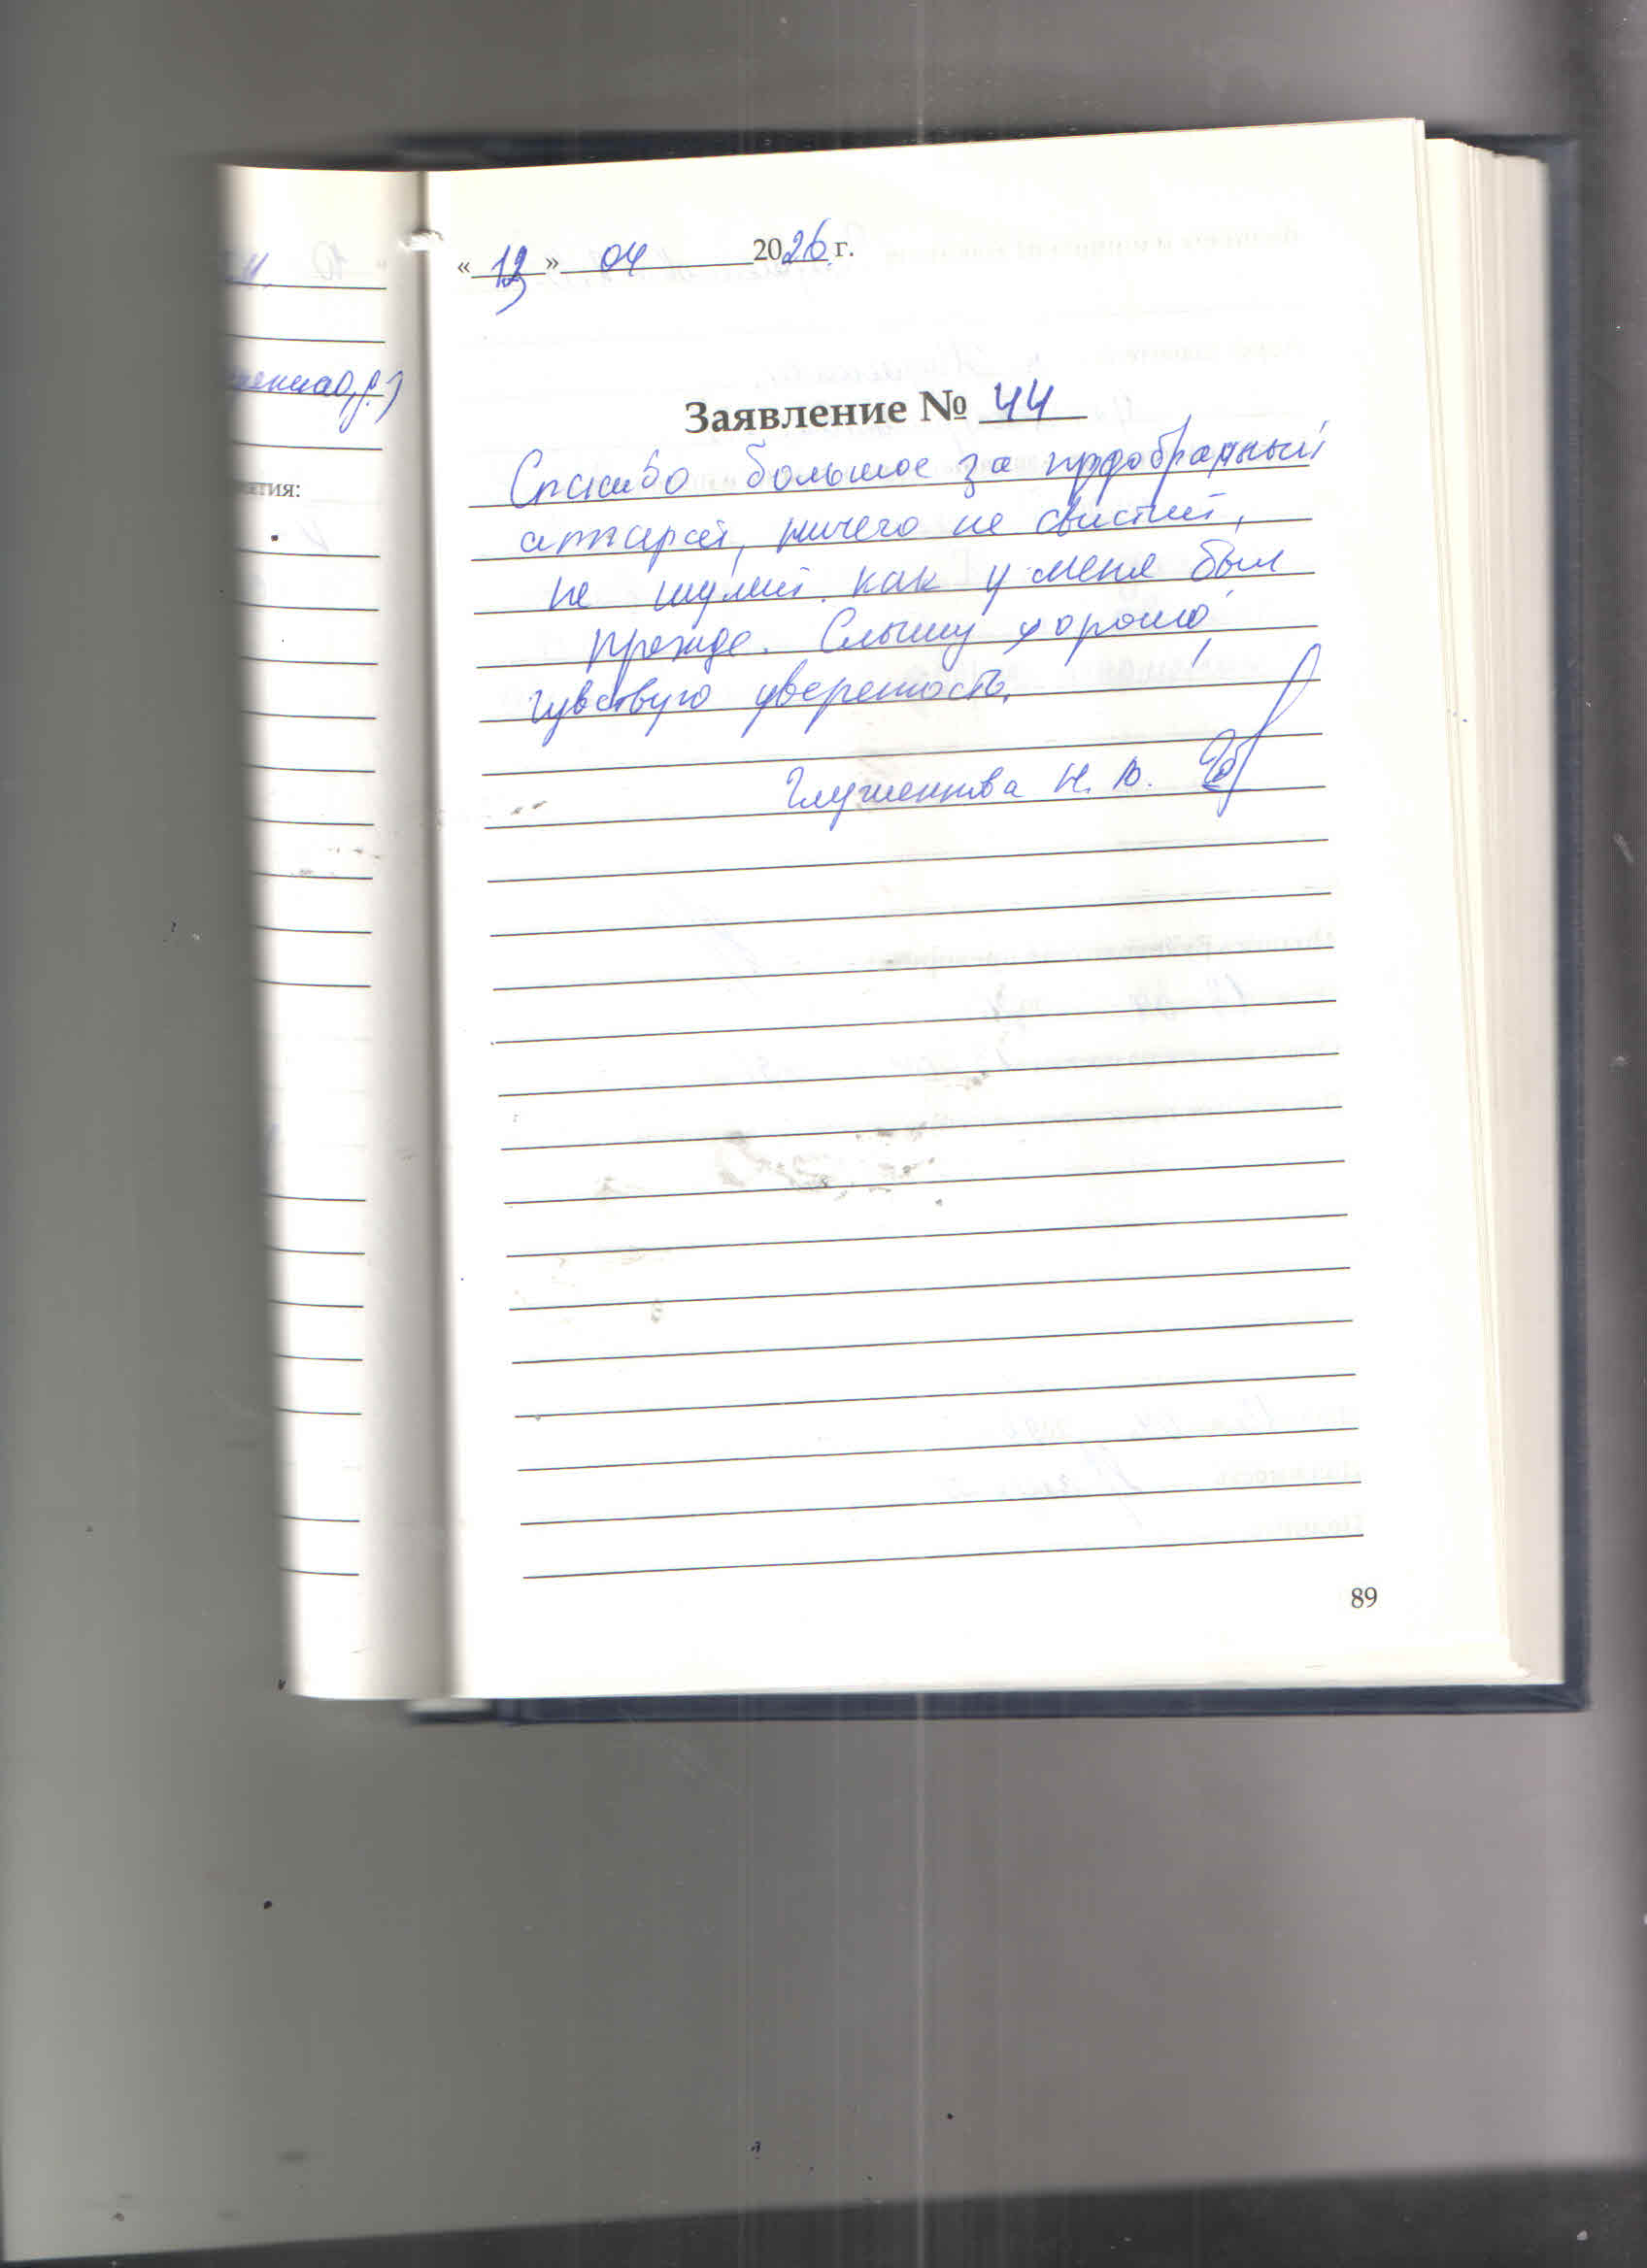 «13» 04 2026 г.
Заявление № 44
Спасибо большое за подобранный
аппарат, ничего не свистит,
не шумит как у меня был
прежде. Слышу хорошо,
чувствую уверенность.
Н. В.
ятия:
89